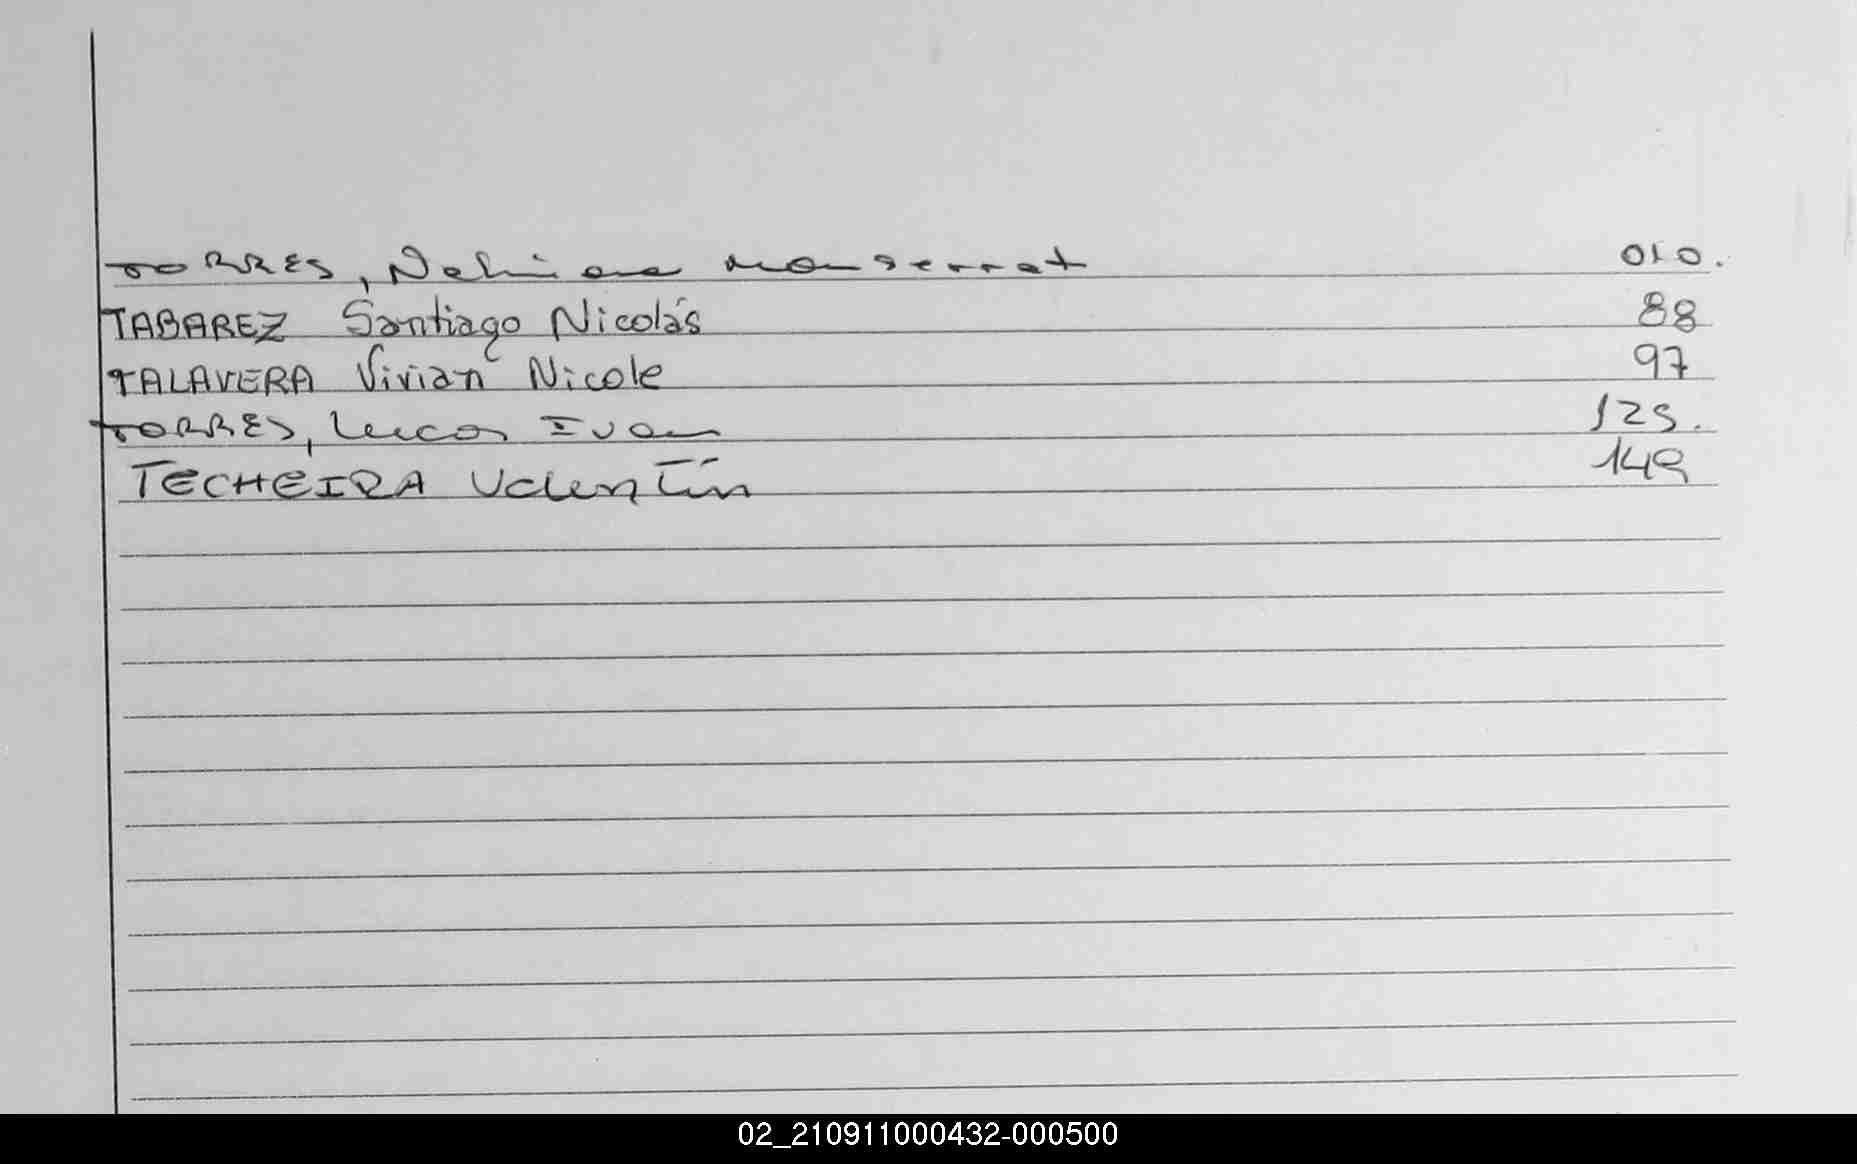 TORRES, Nahiara Monserrat 010.
TABAREZ Santiago Nicolás 88
TALAVERA Vivian Nicole 97
TORRES, Lucas Ivan 125.
TECHEIRA Valentín 149
02_210911000432-000500